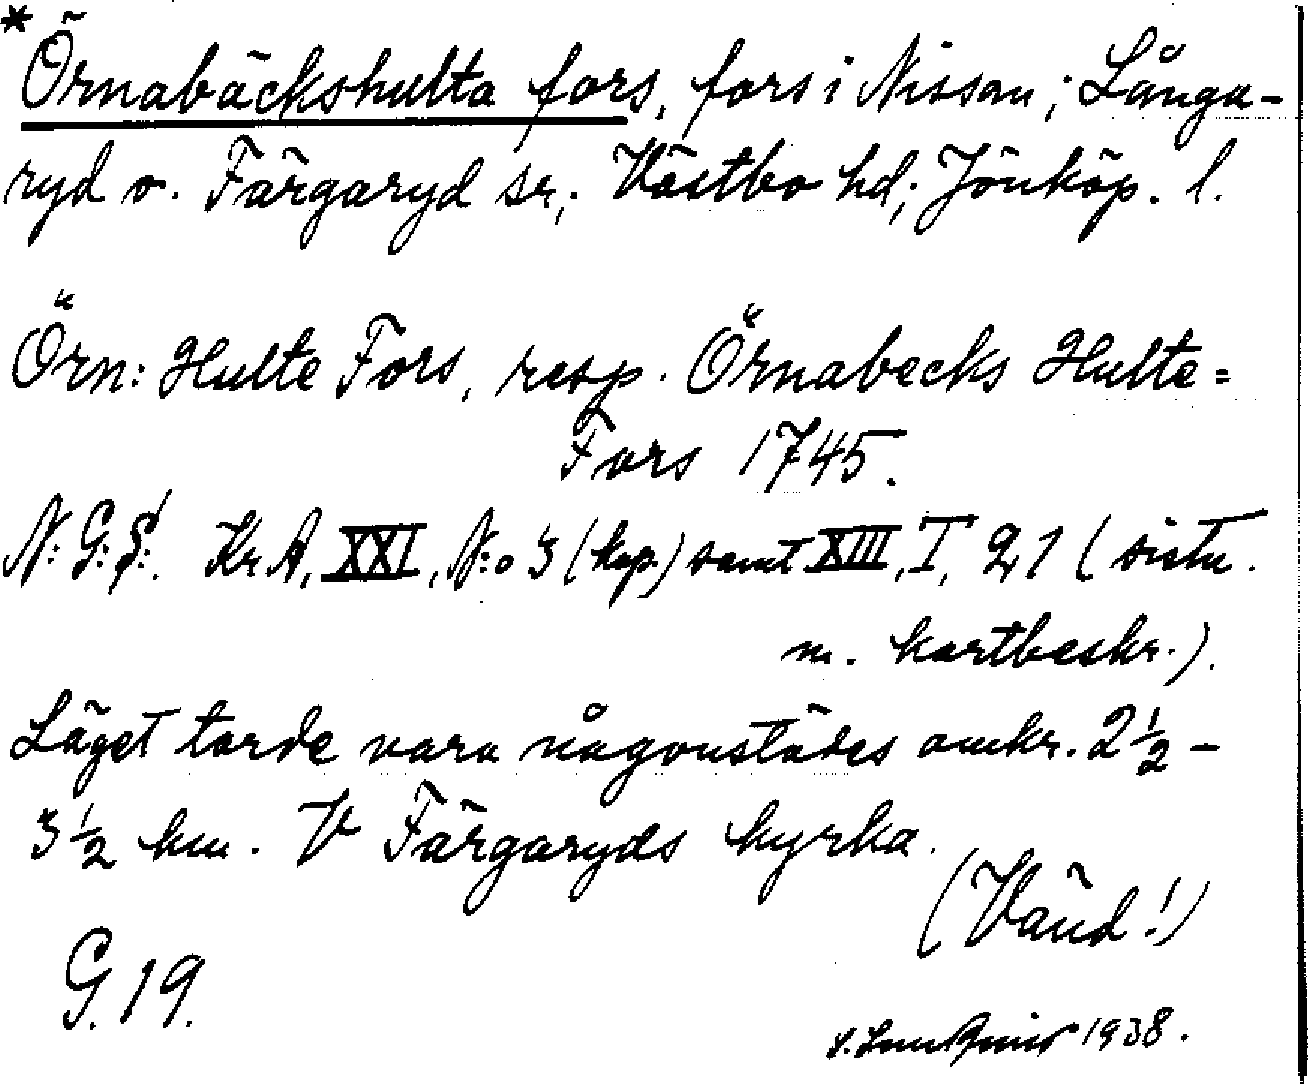 *
Örnabäckshulta fors, fors i Nissan; Långa-
ryd o. Färgaryd sr; Västbo hd; Jönköp. l.
Örn: Hulte Fors, resp. Örnabecks Hulte=
Fors 1745.
N: G: S:. Kr A, XXI, N:o 3 (kop.) samt XIII, I, 21 (sistn.
m. kartbeskr.).
Läget torde vara någonstädes omkr. 2½ -
3½ km. V Färgaryds kyrka.
(Vänd!)
G. 19.
1938.